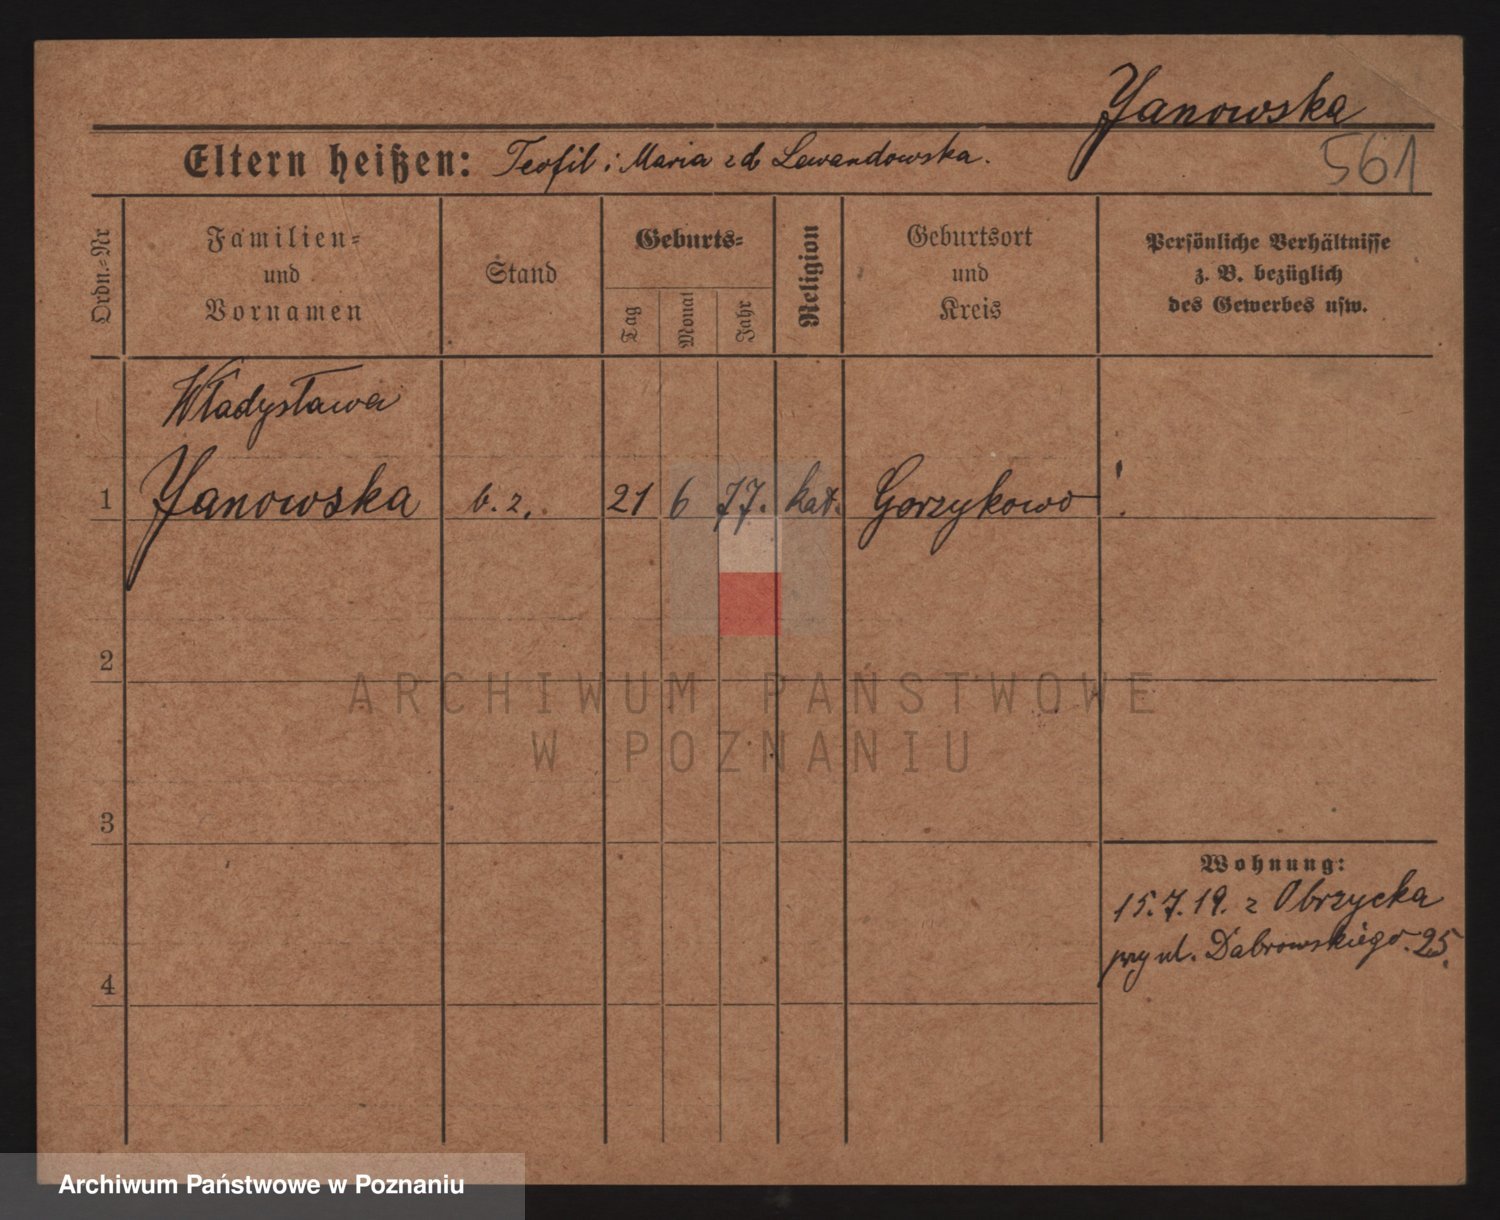 Janowska
Eltern heißen: Teofil i Maria zd Lewandowska.
561
Ordn.-Nr
Familien-
und
Vornamen
Stand
Geburts-
Tag
Monat
Jahr
Religion
Geburtsort
und
Kreis
Persönliche Verhältnisse
z. B. bezüglich
des Gewerbes usw.
Władysława
1 Janowska b. z. 21 6 77. kat. Gorzykowo
2
ARCHIWUM PAŃSTWOWE
W POZNANIU
3
Wohnung:
15.7.19. z Obrzycka
przy ul. Dabrowskiego. 25.
4
Archiwum Państwowe w Poznaniu